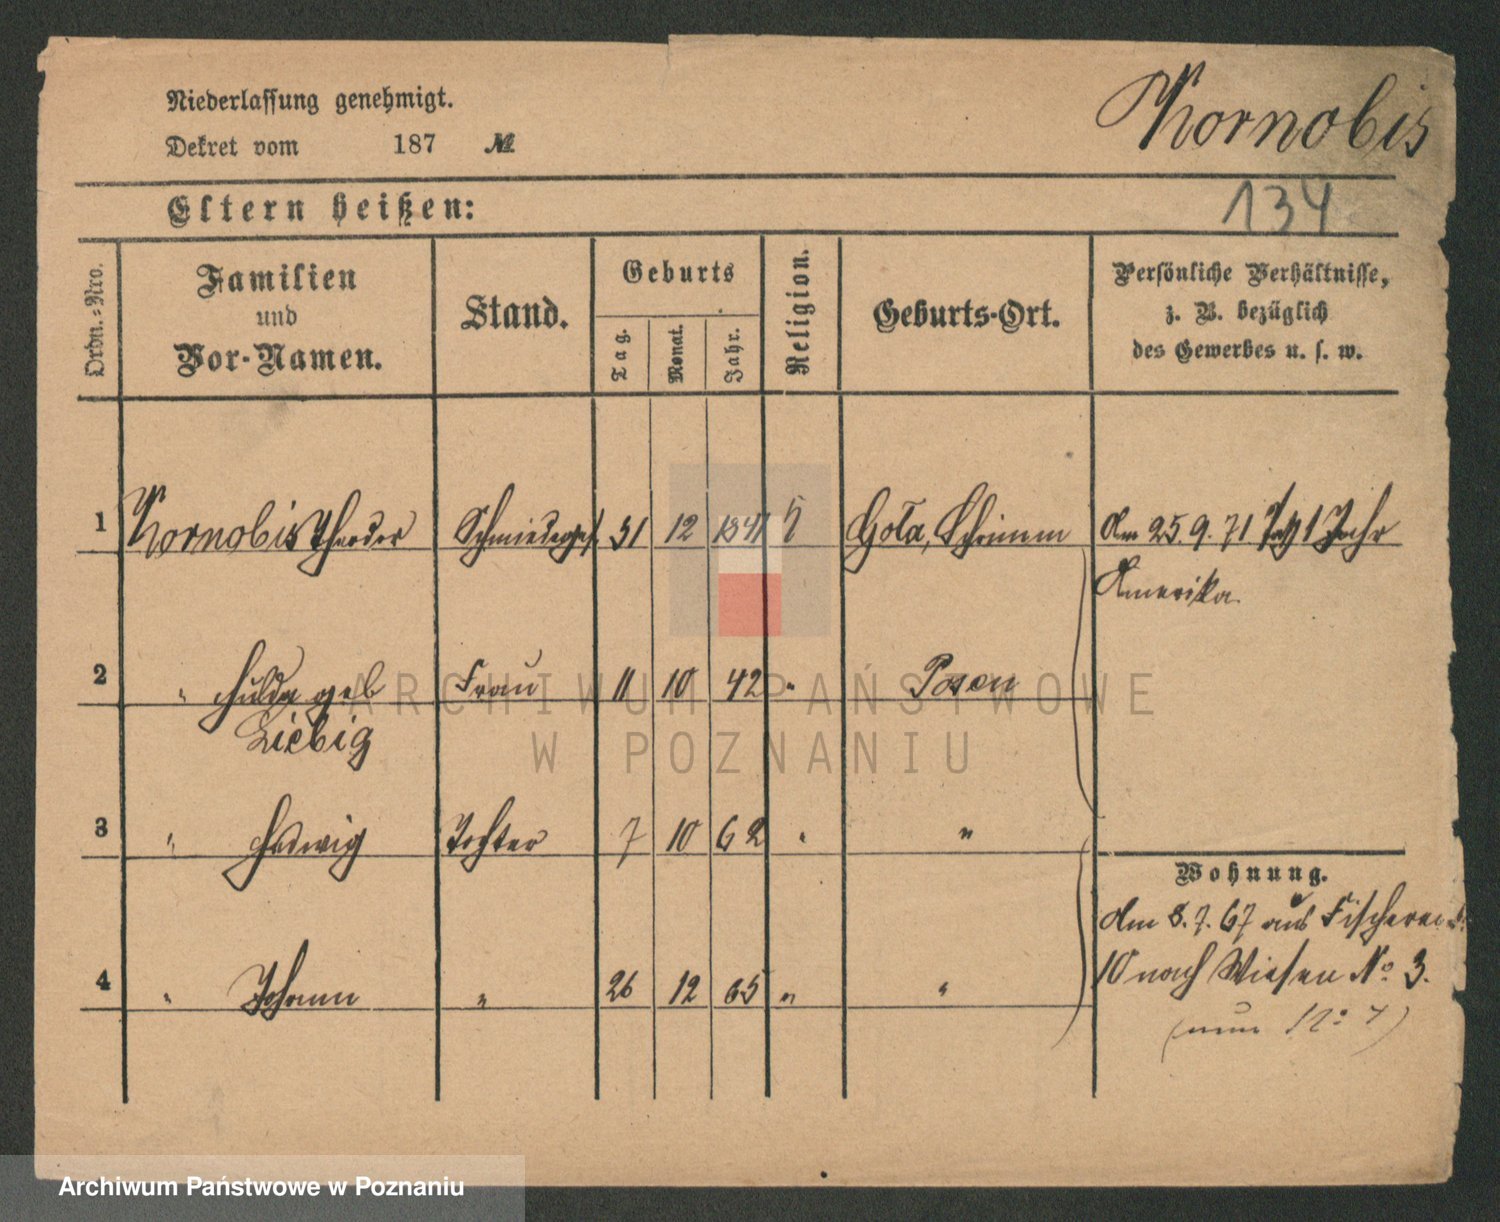 Niederlassung genehmigt.
Kornobis
Dekret vom 187 №
134
Eltern heißen:
Ordn.-Nro.
Familien
und
Vor-Namen.
Stand.
Geburts
Tag.
Monat.
Jahr.
Religion.
Geburts-Ort.
Persönliche Verhältnisse,
z. B. bezüglich
des Gewerbes u. s. w.
1 Kornobis Theodor Schmiedeges. 31 12 1841 Gola, Schrimm Am 25.9.71 1 Jahr
Amerika.
2 " Hulda geb Frau 11 10 42 " Posen
Liebig
3 " Hedwig Tochter 7 10 62 " "
Wohnung.
Am 8.7.67 aus Fischerei
4 " Johann " 26 12 65 " " 10 nach Wiesen No 3.
(nun No 7)
ARCHIWUM PAŃSTWOWE
W POZNANIU
Archiwum Państwowe w Poznaniu